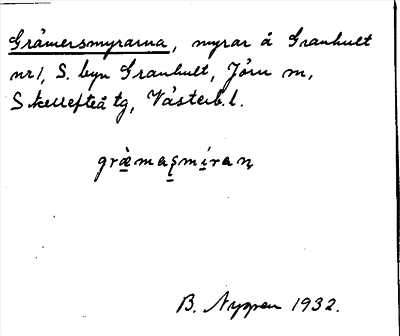 Gråmersmyrarna, myrar å Granhult
nr 1, S. byn Granhult, Jörn sn,
Skellefteå tg, Västerb. l.
gràͅmaʂmíraɳ
B. Nyppen 1932.